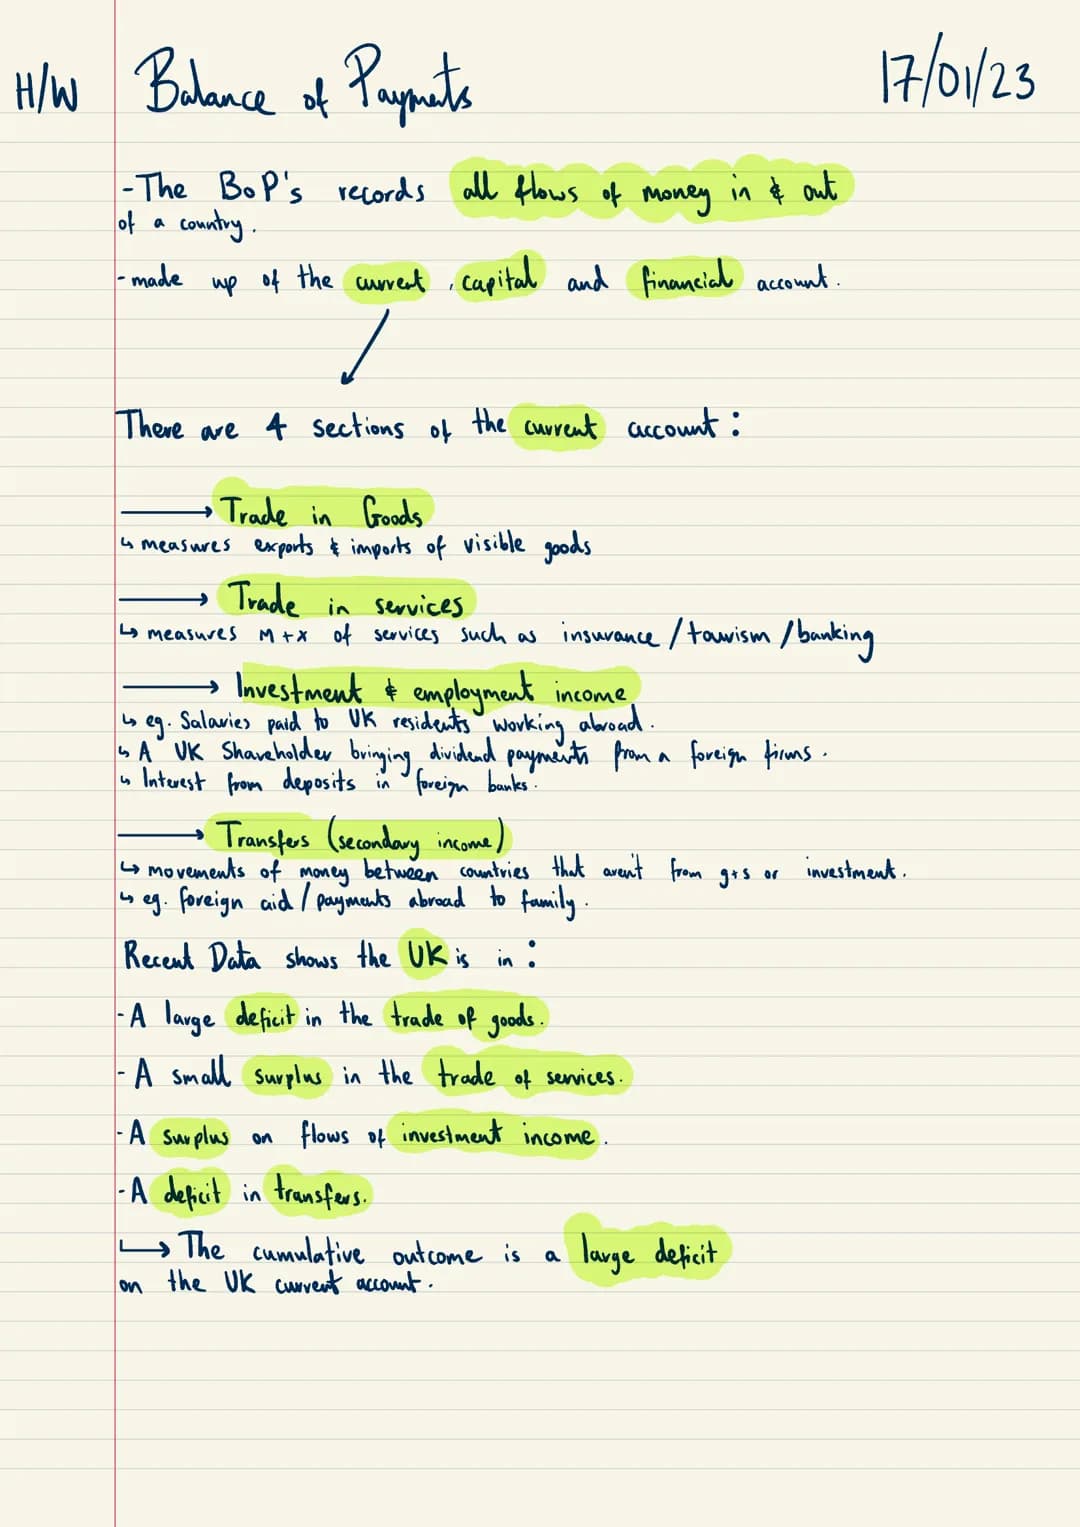 H/W Balance of Payments 17/01/23
-The BoP's records all flows of money in & out
of a country.
-made up of the current, capital and financial account.
There are 4 sections of the current account:
→ Trade in Goods
↳ measures exports & imports of visible goods
→ Trade in services
↳ measures M+X of services such as insurance / tourism / banking
→ Investment & employment income
↳ eg. Salaries paid to UK residents working abroad.
↳ A UK Shareholder bringing dividend payments from a foreign firms.
↳ Interest from deposits in foreign banks.
→ Transfers (secondary income)
↳ movements of money between countries that aren't from g+s or investment.
↳ eg. foreign aid / payments abroad to family.
Recent Data shows the UK is in:
-A large deficit in the trade of goods.
-A small surplus in the trade of services.
-A surplus on flows of investment income.
-A deficit in transfers.
↳ The cumulative outcome is a large deficit
on the UK current account.